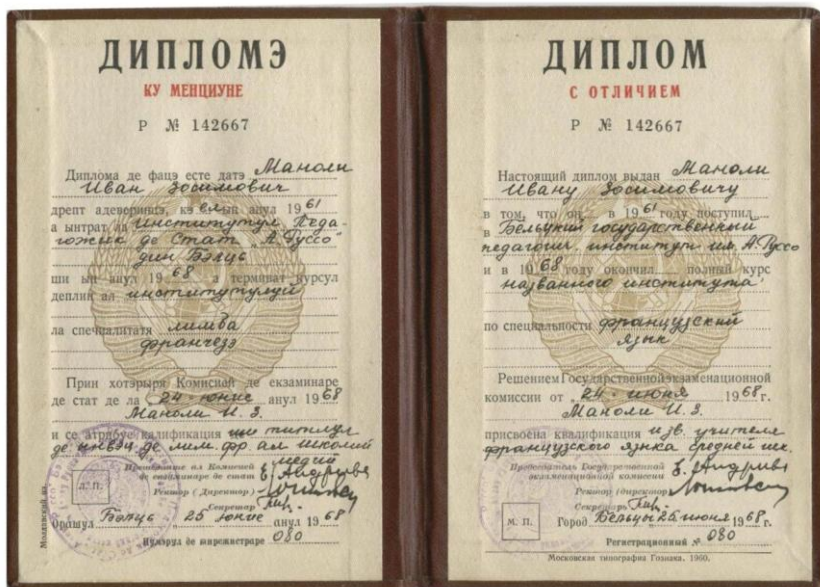 ДИПЛОМЭ
КУ МЕНЦИУНЕ
Р № 142667
Диплома де фацэ есте датэ Маноли
Иван Зосимович
дрепт адеверинцэ, кэ ел ын анул 1961
а ынтрат ла институтул Педа-
гожик де Стат „А. Руссо"
дин Бэлць
ши ын анул 1968 а терминат курсул
деплин ал институтулуй
ла специалитатя лимба
франчезэ
Прин хотэрыря Комисией де екзаминаре
де стат де ла „24" юние анул 1968
Маноли И. З.
и се атрибуе калификация ши титлул
де ынвэц. де лим. фр. ал школий
медий
Прешединте ал Комисией
де екзаминаре де стат
Ректор (Директор)
Секретар
Л. П.
Орашул Бэлць „25" юние анул 1968
Нумэрул де ынрежистраре 080
ДИПЛОМ
С ОТЛИЧИЕМ
Р № 142667
Настоящий диплом выдан Маноли
Ивану Зосимовичу
в том, что он в 1961 году поступил
в Бельцкий государственный
педагогич. институт им. А. Руссо
и в 1968 году окончил полный курс
названного института
по специальности французский
язык
Решением Государственной экзаменационной
комиссии от „24" июня 1968 г.
Маноли И. З.
присвоена квалификация и зв. учителя
французского языка средней шк.
Председатель Государственной
экзаменационной комиссии
Ректор (директор)
Секретарь
М. П.
Город Бельцы 25 июня 1968 г.
Регистрационный № 080
Московская типография Гознака. 1960.